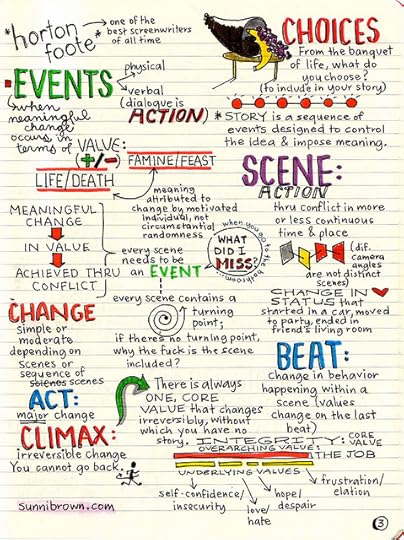 *horton foote*
one of the
best screenwriters
of all time
CHOICES
From the banquet
of life, what do
you choose?
(to include in your story)
* STORY is a sequence of
events designed to control
the idea & impose meaning.
• EVENTS
physical
verbal
(dialogue is
ACTION)
when
meaningful
change
occurs in
terms of
VALUE:
+/-
FAMINE/FEAST
LIFE/DEATH
meaning
attributed to
change by motivated
individual, not
circumstantial
randomness
MEANINGFUL
CHANGE
IN VALUE
ACHIEVED THRU
CONFLICT
every scene
needs to be
an EVENT
SCENE:
ACTION
thru conflict in more
or less continuous
time & place
when you go to the bathroom
WHAT
DID I
MISS?
(dif.
camera
angles
are not distinct
scenes)
CHANGE IN
STATUS that
started in a car, moved
to party, ended in
friend's living room
CHANGE
simple or
moderate
depending on
scenes or
sequence of
scenes
every scene contains a
turning
point;
if there's no turning point,
why the fuck is the scene
included?
BEAT:
change in behavior
happening within a
scene (values
change on the last
beat)
ACT:
major change
There is always
ONE, CORE
VALUE that changes
irreversibly, without
which you have no
story.
CLIMAX:
irreversible change
You cannot go back.
INTEGRITY: CORE
VALUE
OVERARCHING VALUE:
THE JOB
UNDERLYING VALUES
self-confidence/
insecurity
love/
hate
hope/
despair
frustration/
elation
sunnibrown.com
3